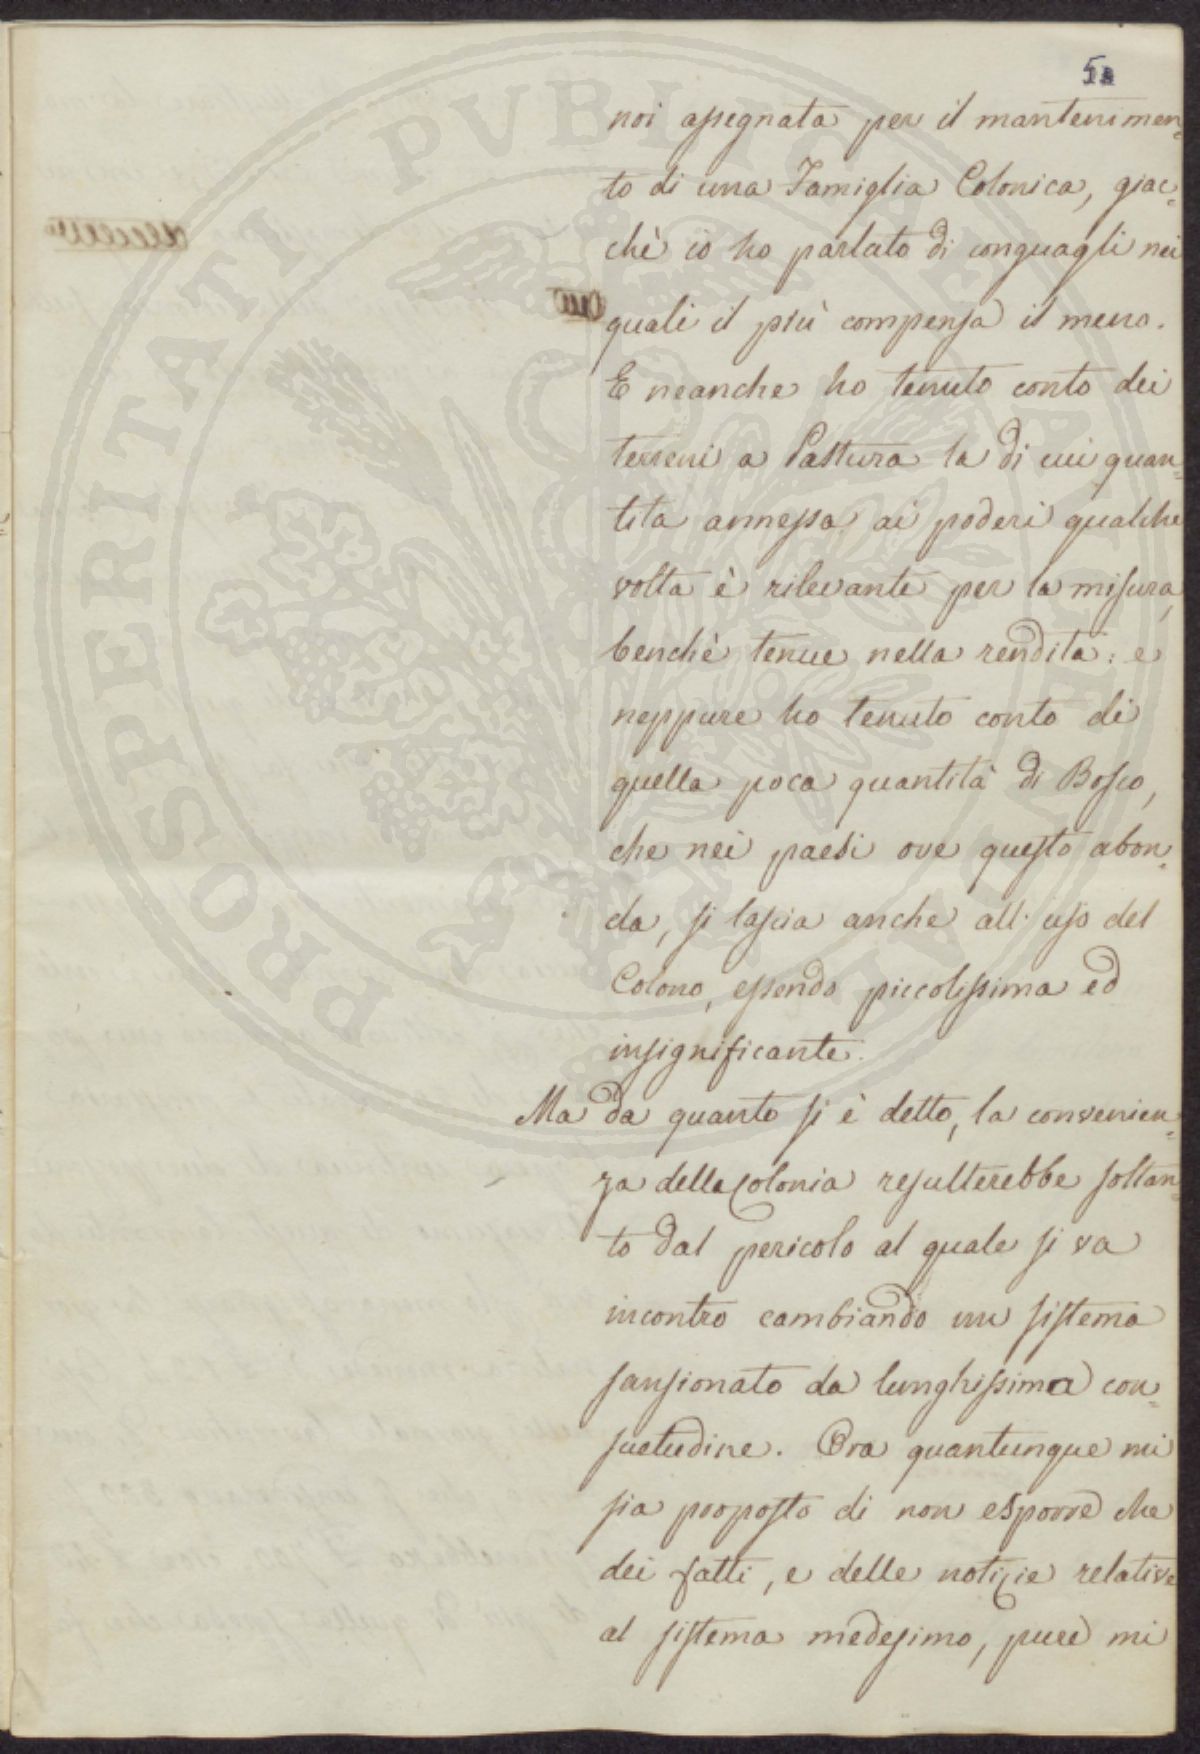 noi assegnata per il mantenimen=
to di una Famiglia Colonica, giac=
chè io ho parlato di conguagli nei
quali il più compensa il meno.
E neanche ho tenuto conto dei
terreni a Pastura la di cui quan=
tita annessa ai poderi qualche
volta è rilevante per la misura,
benchè tenue nella rendita: e
neppure ho tenuto conto di
quella poca quantità di Bosco,
che nei paesi ove questo abon=
da, si lascia anche all'uso del
Colono, essendo piccolissima ed
insignificante.
Ma da quanto si è detto, la convenien=
za della Colonia resulterebbe soltan=
to dal pericolo al quale si va
incontro cambiando un sistema
sansionato da lunghissima con=
suetudine. Ora quantunque mi
sia proposto di non esporre che
dei fatti, e delle notizie relative
al sistema medesimo, pure mi
PROSPERITATI PVBLICAE AVGENDAE